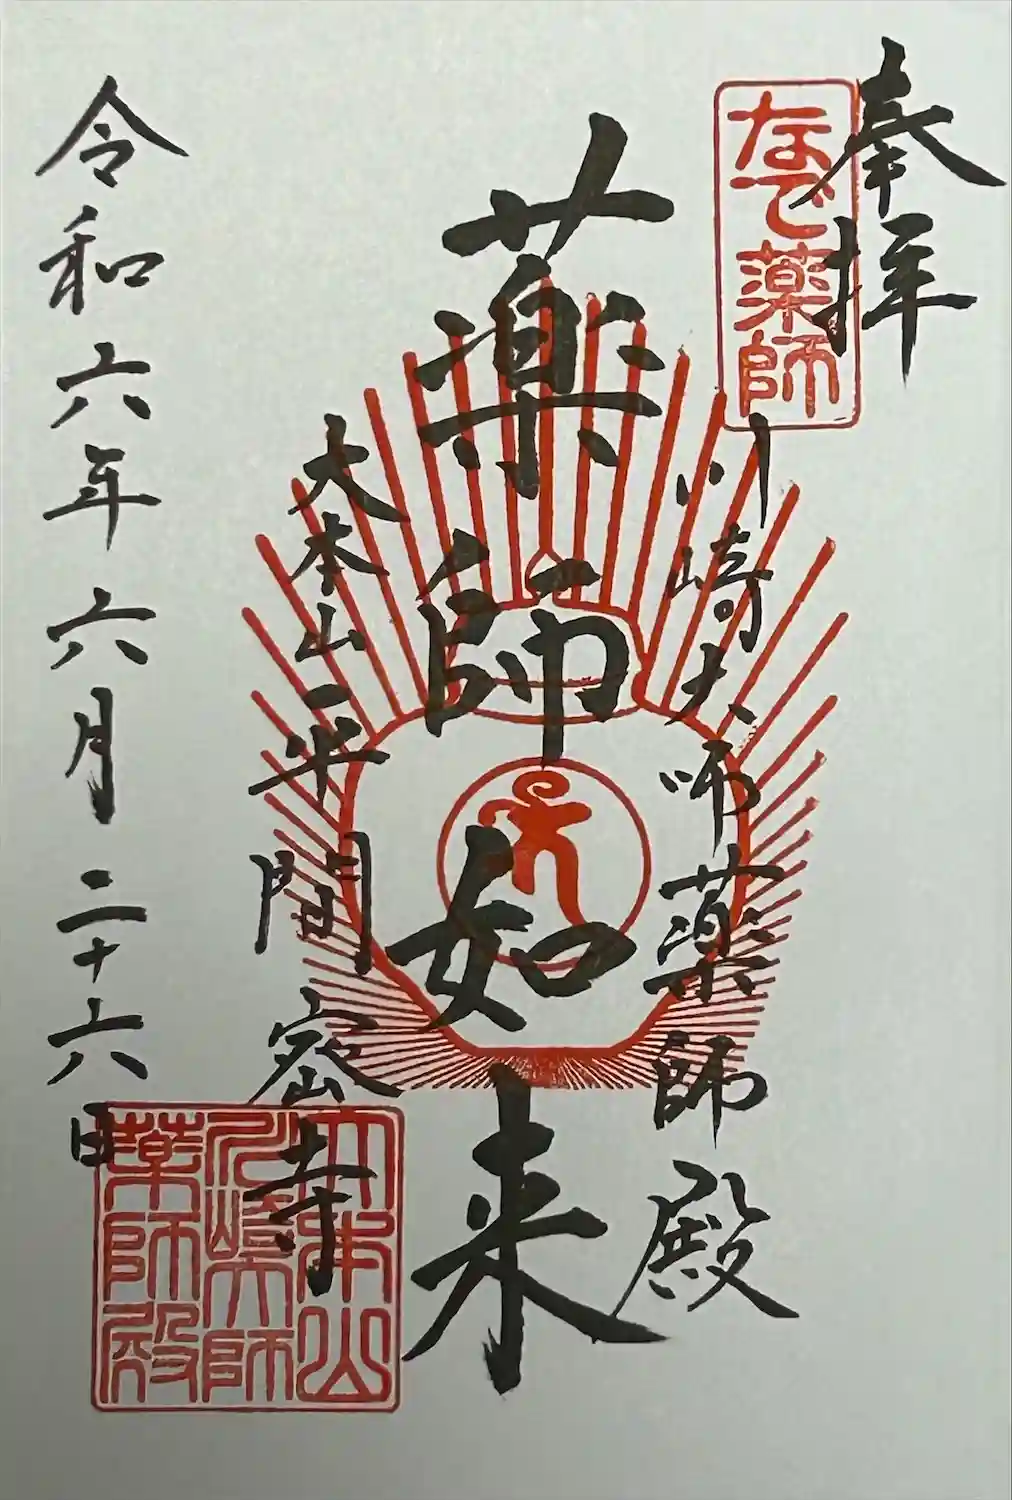 奉拝
なで薬師
川崎大师薬師殿
薬師如来
大本山平間密寺
令和六年六月二十六日
大本山
川崎大師
薬師殿